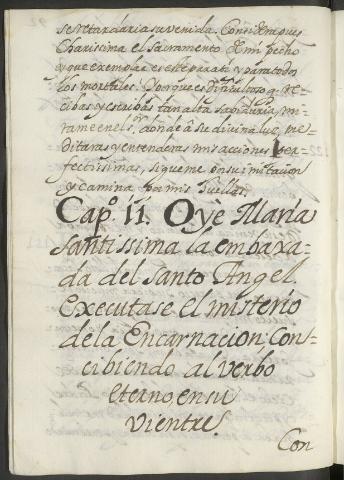 se retardaria su venida. Considera pues
charissima el sacramento de mi pecho
y que exemplar es este para ti y para todos
los mortales. Y porque es dificultoso q. re-
cibas y escribas tan alta sabiduria, mi-
rame en el Sr. donde a su divina luz me-
ditaras y entenderas mis acciones per-
fectissimas, sigueme en su imitacion
y camina por mis huellas.
Cap.º 11. Oye Maria
Santissima la embaxa-
da del Santo Angel.
Executase el misterio
de la Encarnacion, con-
cibiendo al verbo
eterno, en su
vientre.
Con